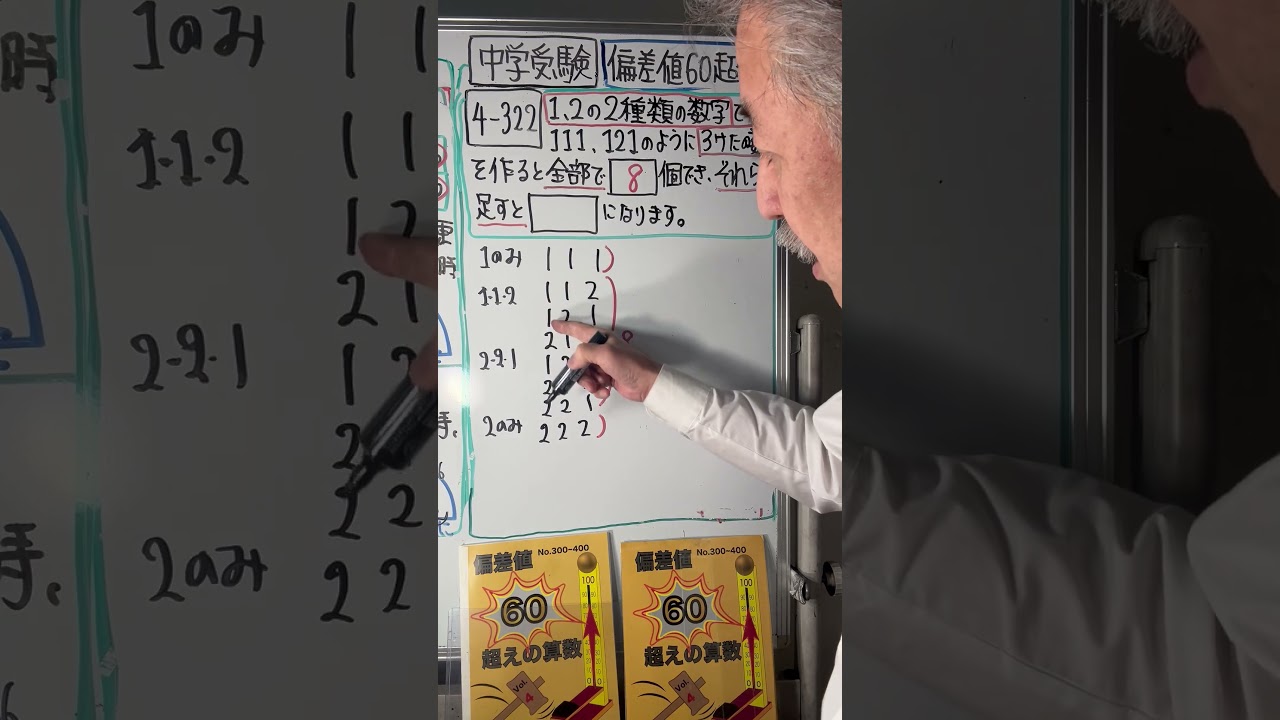 中学受験 偏差値60超
4-322 1、2の2種類の数字で
111、121のように3けたの
を作ると全部で 8 個でき、それら
足すと になります。
1のみ 1 1 1
1・1・2 1 1 2
1 2 1
2 1
2・2・1 1 2
2
2 2 1
2のみ 2 2 2
偏差値 No.300~400
60
超えの算数
Vol.4
100
偏差値 No.300~400
60
超えの算数
Vol.4
100
1のみ 1 1
1・1・2 1 1
1 2
2 1
2・2・1 1 2
2
2 2
2のみ 2 2
時
手。